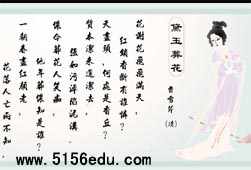 黛玉葬花
曹雪芹
(清)
花谢花飞飞满天,
红绡香断有谁怜?
天尽头,何处是香丘?
质本洁来还洁去,
强如污淖陷泥沟。
侬今葬花人笑痴,
他年葬侬知是谁?
一朝春尽红颜老,
花落人亡两不知。
www.5156edu.com